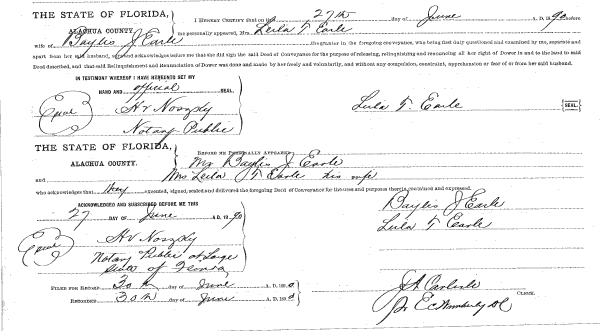 THE STATE OF FLORIDA,
ALACHUA COUNTY.
I HEREBY CERTIFY that on the 27th day of June A. D. 1890 before
me personally appeared, Mrs. Leila T Earle
wife of Baylis J. Earle the grantor in the foregoing conveyance, who being first duly questioned and examined by me, separate and
apart from her said husband, upon and acknowledges before me that she did sign the said Deed of Conveyance for the purpose of releasing, relinquishing and renouncing all her right of Dower in and to the land in said
Deed described, and that said Relinquishment and Renunciation of Dower was done and made by her freely and voluntarily, and without any compulsion, constraint, apprehension or fear of or from her said husband.
IN TESTIMONY WHEREOF I HAVE HEREUNTO SET MY
HAND AND official SEAL.
Leila T. Earle SEAL
Notary Public
THE STATE OF FLORIDA,
ALACHUA COUNTY.
BEFORE ME PERSONALLY APPEARED
Mr Baylis J. Earle
and Mrs Leila T Earle his wife
who acknowledges that they executed, signed, sealed and delivered the foregoing Deed of Conveyance for the uses and purposes therein contained and expressed.
ACKNOWLEDGED AND SUBSCRIBED BEFORE ME THIS
27 DAY OF June A.D. 1890
Baylis J Earle
Leila T Earle
Notary Public at Large
State of Florida
FILED FOR RECORD 30th day of June A. D. 1890
RECORDED 30th day of June A. D. 1890
J A Carlisle
CLERK.
DC